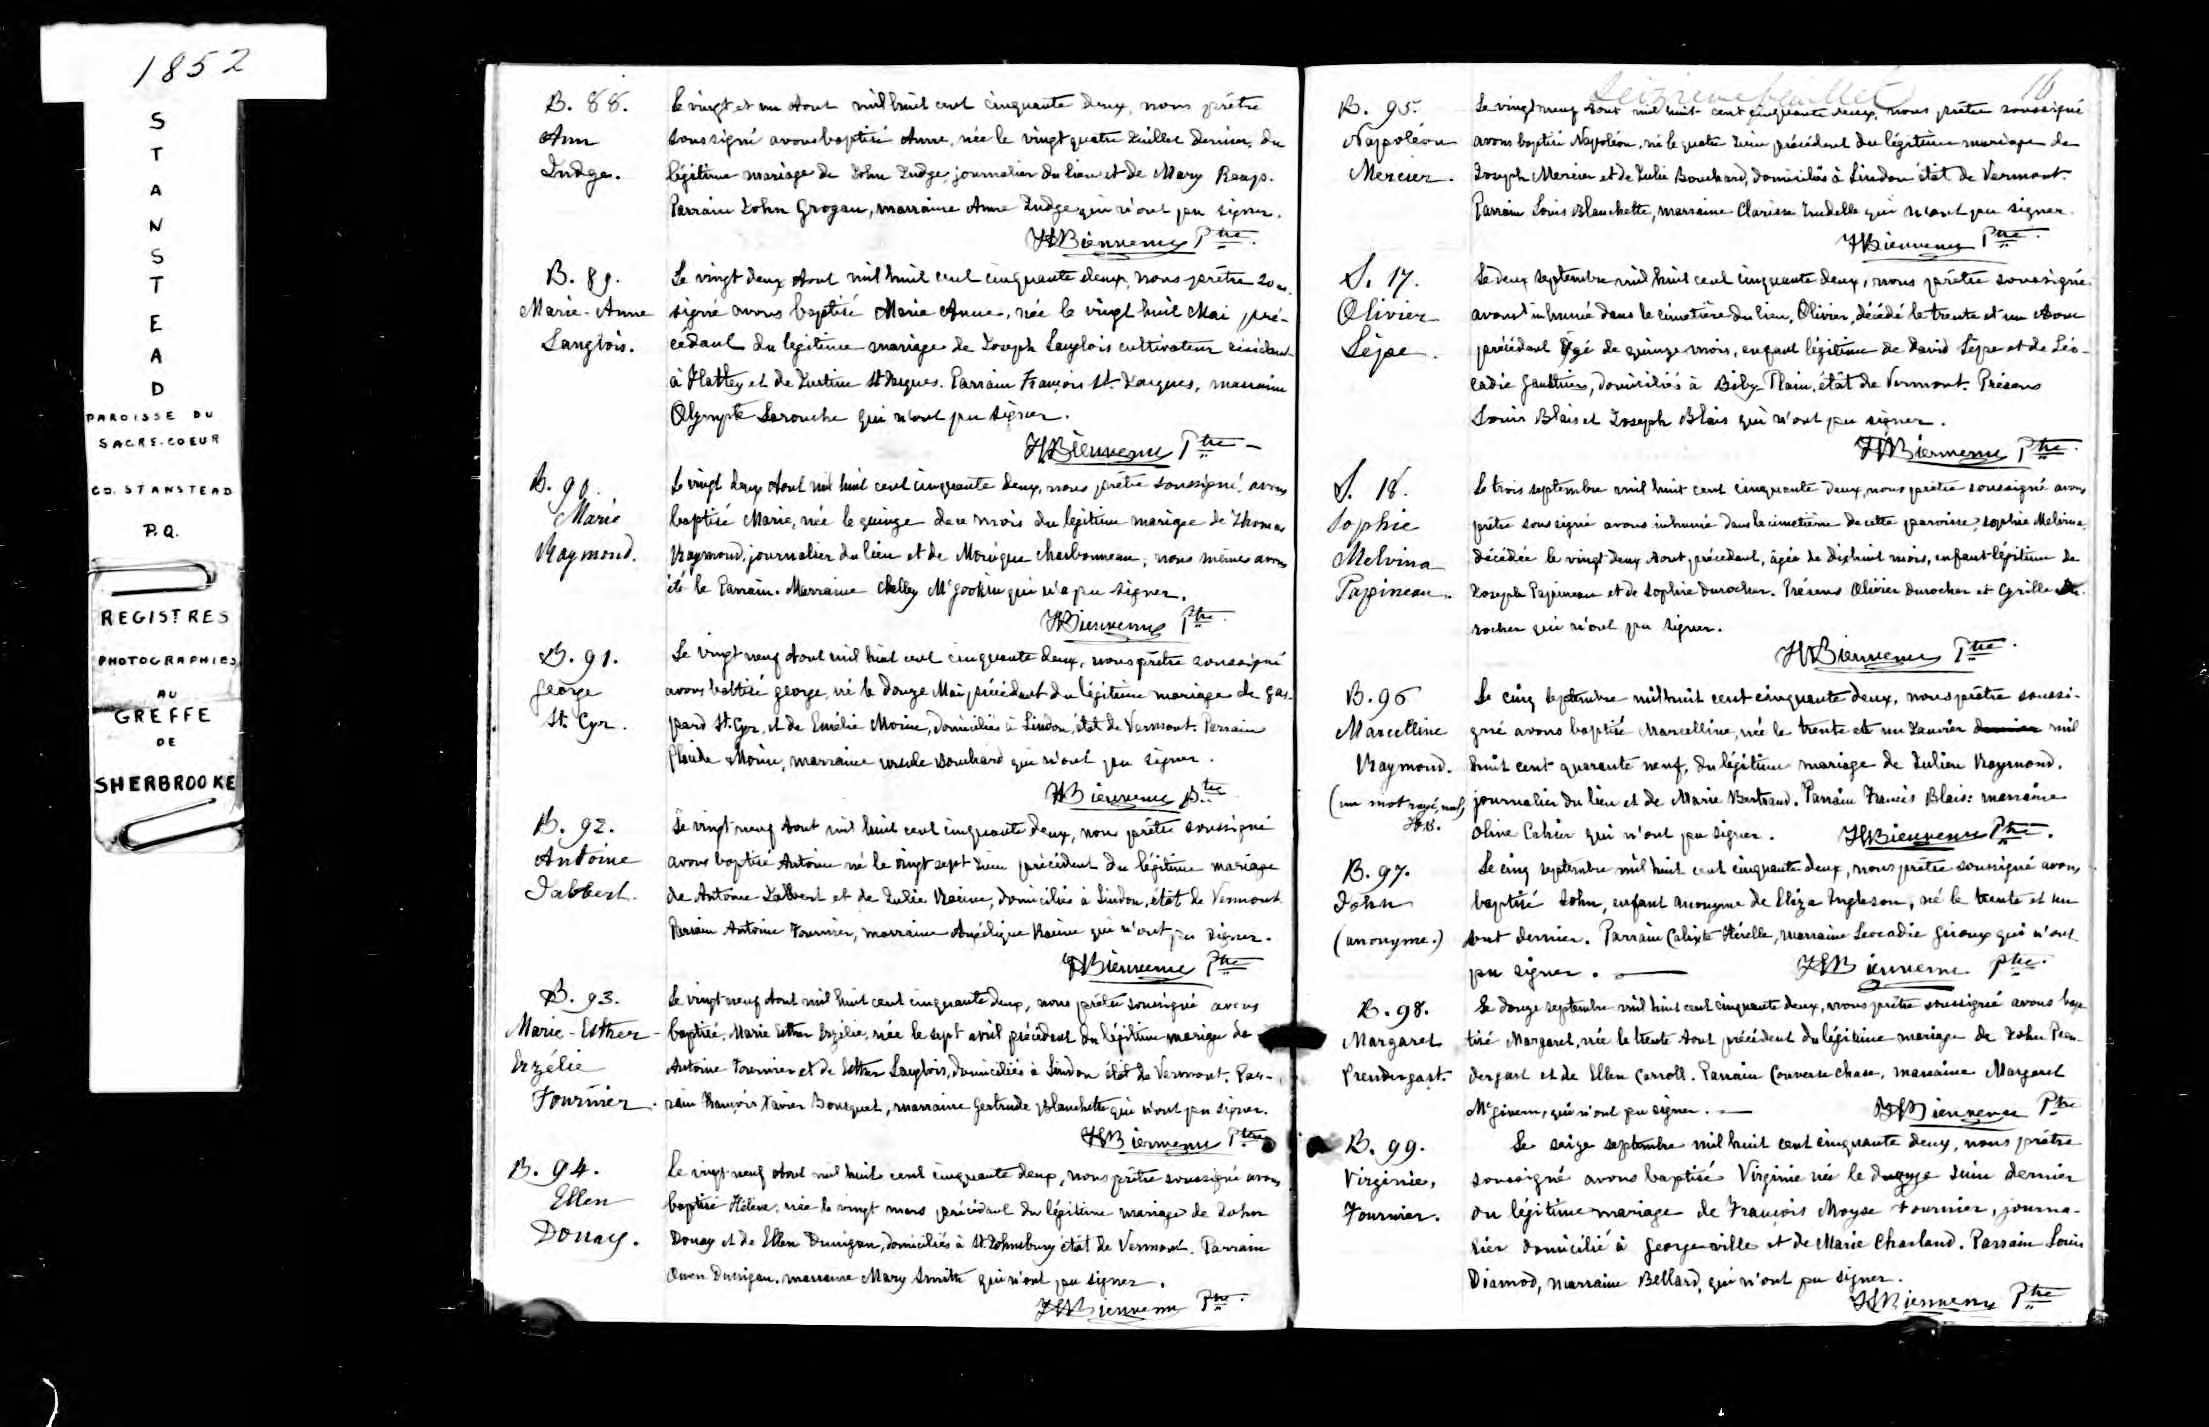 1852
S
T
A
N
S
T
E
A
D
PAROISSE DU
SACRÉ-COEUR
CO. STANSTEAD
P.Q.
REGISTRES
PHOTOGRAPHIES
AU
GREFFE
DE
SHERBROOKE
B. 88.
Ann
Judge.
Le vingt et un Aout mil huit cent cinquante deux, nous prêtre
soussigné avons baptisé Anne, née le vingt quatre Juillet dernier, du
légitime mariage de John Judge, journalier du lieu et de Mary Reap.
Parrain John Grogan, marraine Anne Judge qui n'ont pu signer.
JHBienvenu Ptre.
B. 89.
Marie-Anne
Langlois.
Le vingt deux Aout mil huit cent cinquante deux, nous prêtre sous-
signé avons baptisé Marie Anne, née le vingt huit Mai pré-
cédant du légitime mariage de Joseph Langlois cultivateur résidant
à Hatley et de Justine St Jacques. Parrain François St. Jacques, marraine
Olympte Larouche qui n'ont pu signer.
JHBienvenu Ptre
B. 90.
Marie
Raymond.
Le vingt deux Aout mil huit cent cinquante deux, nous prêtre soussigné, avons
baptisé Marie, née le quinze de ce mois du légitime mariage de Thomas
Raymond, journalier du lieu et de Monique Charbonneau, nous mêmes avons
été le Parrain. Marraine McGookin qui n'a pu signer.
JHBienvenu Ptre.
B. 91.
George
St. Cyr.
Le vingt neuf Aout mil huit cent cinquante deux, nous prêtre soussigné
avons baptisé george, né le douze Mai précédant du légitime mariage de gas-
pard St. Cyr, et de Emélie Morin, domiciliés à Lindon, état de Vermont. Parrain
Placide Morin, marraine ursule Bouchard qui n'ont pu signer.
JHBienvenu Ptre
B. 92.
Antoine
Jabbert.
Le vingt neuf Aout mil huit cent cinquante deux, nous prêtre soussigné
avons baptisé Antoine né le vingt sept Juin précédent du légitime mariage
de Antoine Jabbert et de Julie Racine, domiciliés à Lindon, état de Vermont
Parrain Antoine Fournier, marraine Angélique Racine qui n'ont pu signer.
JHBienvenu Ptre
B. 93.
Marie-Esther
Erzélie
Fournier.
Le vingt neuf Aout mil huit cent cinquante deux, nous prêtre soussigné avons
baptisé, Marie Esther Erzélie, née le sept avril précédent du légitime mariage de
Antoine Fournier et de Esther Langlois, domiciliés à Lindon état de Vermont. Par-
rain François Xavier Bousquet, marraine Gertrude Blanchette qui n'ont pu signer.
JHBienvenu Ptre
B. 94.
Ellen
Donay.
Le vingt neuf Aout mil huit cent cinquante deux, nous prêtre soussigné avons
baptisé Hélène, née le vingt mars précédant du légitime mariage de John
Donay et de Ellen Dunigan, domiciliés à St. Johnsbury état de Vermont. Parrain
Owen Dunigan, marraine Mary Smith qui n'ont pu signer.
JHBienvenu Ptre.
Seizième feuillet 16
B. 95.
Napoléon
Mercier.
Le vingt neuf Aout mil huit cent cinquante deux, nous prêtre soussigné
avons baptisé Napoléon, né le quatre Juin précédent du légitime mariage de
Joseph Mercier et de Julie Bouchard, domiciliés à Lindon état de Vermont.
Parrain Louis Blanchette, marraine Clarisse Trudelle qui n'ont pu signer.
JHBienvenu Ptre.
S. 17.
Olivier
Lépe.
Le deux septembre mil huit cent cinquante deux, nous prêtre soussigné
avons inhumé dans le cimetière du lieu, Olivier, décédé le trente et un Aout
précédent âgé de quinze mois, enfant légitime de David Lépe et de Léo-
cadie Gauthier, domiciliés à Biby Plain, état de Vermont. Présens
Louis Blais et Joseph Blais qui n'ont pu signer.
JHBienvenu Ptre.
S. 18.
Sophie
Melvina
Papineau.
Le trois septembre mil huit cent cinquante deux, nous prêtre soussigné avons
prêtre soussigné avons inhumé dans le cimetière de cette paroisse, Sophie Melvina
décédée le vingt deux Aout, précédent, âgée de dixhuit mois, enfant légitime de
Joseph Papineau et de Sophie Durocher. Présens Olivier Durocher et Cyrille Du-
rocher qui n'ont pu signer.
JHBienvenu Ptre.
B. 96
Marcelline
Raymond.
(un mot rayé, nul)
JH.B.
Le cinq septembre mil huit cent cinquante deux, nous prêtre soussi-
gné avons baptisé Marcelline, née le trente et un Janvier dernier mil
huit cent quarante neuf, du légitime mariage de Julien Raymond,
journalier du lieu et de Marie Bertrand. Parrain Francis Blais: marraine
Olive Cahier qui n'ont pu signer. JHBienvenu Ptre.
B. 97.
John
(anonyme.)
Le cinq septembre mil huit cent cinquante deux, nous prêtre soussigné avons
baptisé John, enfant anonyme de Eliza Ingleson, né le trente et un
Aout dernier. Parrain Calixte Hérelle, marraine Leocadie Giroux qui n'ont
pu signer. JHBienvenu Ptre.
B. 98.
Margaret
Prendergast.
Le douze septembre mil huit cent cinquante deux, nous prêtre soussigné avons bap-
tisé Margaret, née le trente Aout précédent du légitime mariage de John Pren-
dergast et de Ellen Carroll. Parrain Converse Chase, marraine Margaret
McGivern, qui n'ont pu signer. JHBienvenu Ptre
B. 99.
Virginie,
Fournier.
Le seize septembre mil huit cent cinquante deux, nous prêtre
soussigné avons baptisé Virginie née le douze Juin dernier
du légitime mariage de François Moyse Fournier, journa-
lier domicilié à Georgeville et de Marie Charland. Parrain Louis
Diamod, marraine Bellard, qui n'ont pu signer.
JHBienvenu Ptre